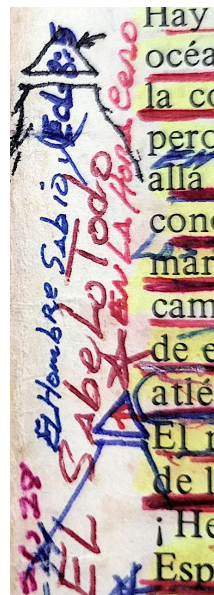 El Hombre Sabio
El Sabe Lo Todo
EN LA Hora Cero
Hay
océa
la co
perc
allá
conc
mar
cam
de e
atlé
El r
de l
¡ He
Esp